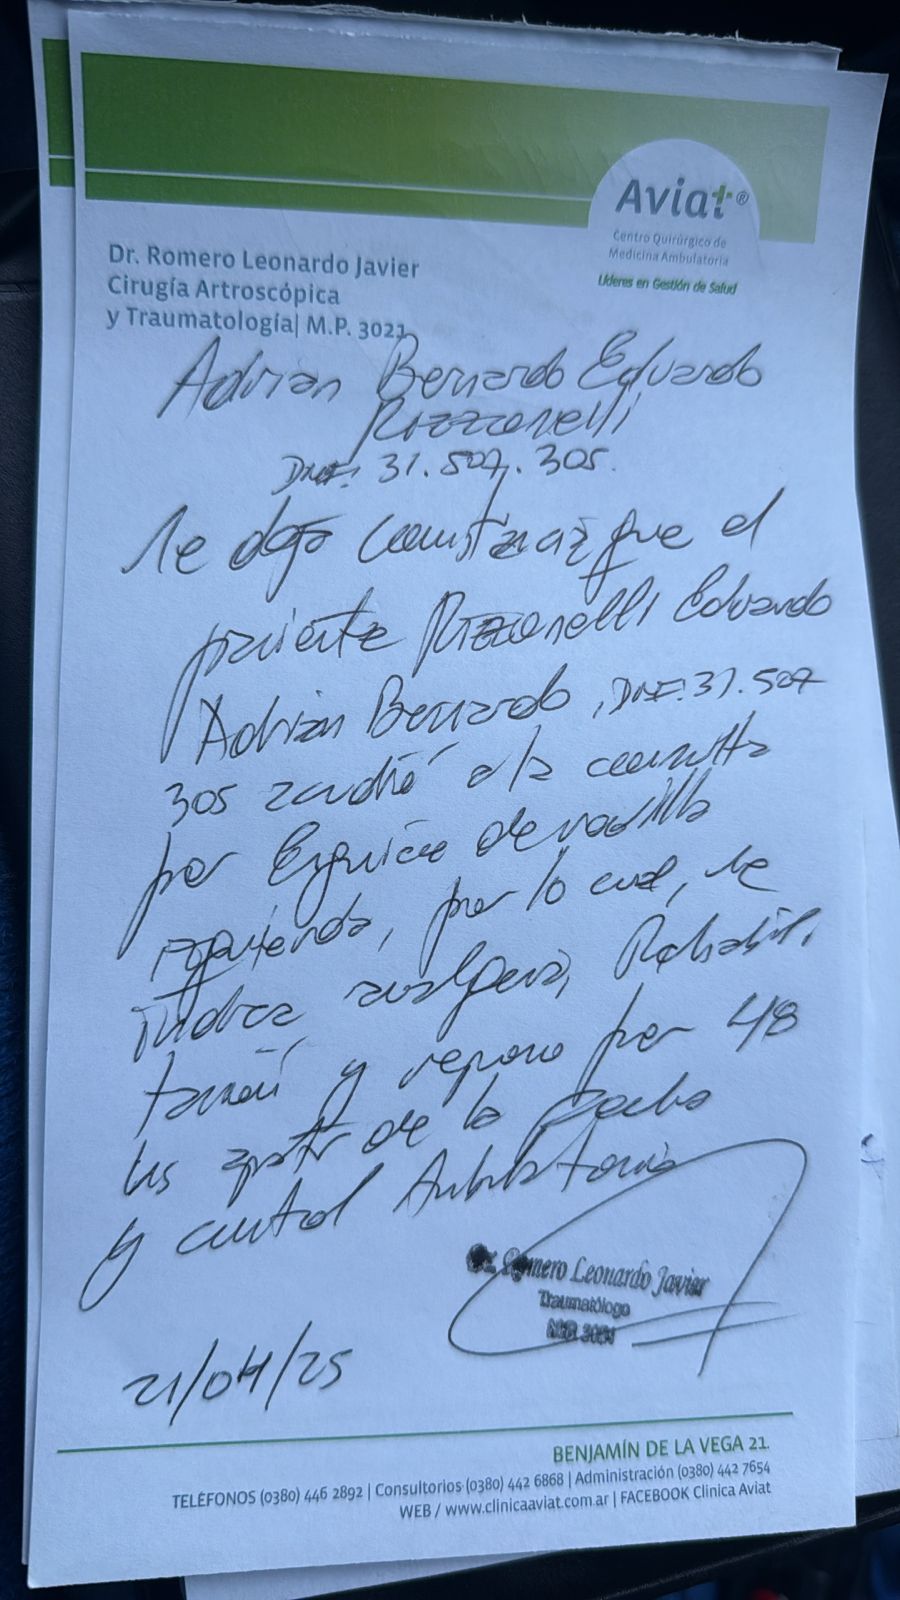 Aviat®
Centro Quirúrgico de
Medicina Ambulatoria
Líderes en Gestión de Salud
Dr. Romero Leonardo Javier
Cirugía Artroscópica
y Traumatología| M.P. 3021
Adrian Bernardo Eduardo
Rizzanelli
DNI: 31.507.305.
Se deja constancia que el
paciente Rizzanelli Eduardo
Adrián Bernardo, DNI: 31.507
305 acudió a la consulta
por Esguince de rodilla
izquierda, por lo cual, se
indica analgesia, Rehabili
tación y reposo por 48
hs apartir de la fecha
y control Ambulatorio
Dr. Romero Leonardo Javier
Traumatólogo
21/04/25
BENJAMÍN DE LA VEGA 21.
TELÉFONOS (0380) 446 2892 | Consultorios (0380) 442 6868 | Administración (0380) 442 7654
WEB / www.clinicaaviat.com.ar | FACEBOOK Clinica Aviat